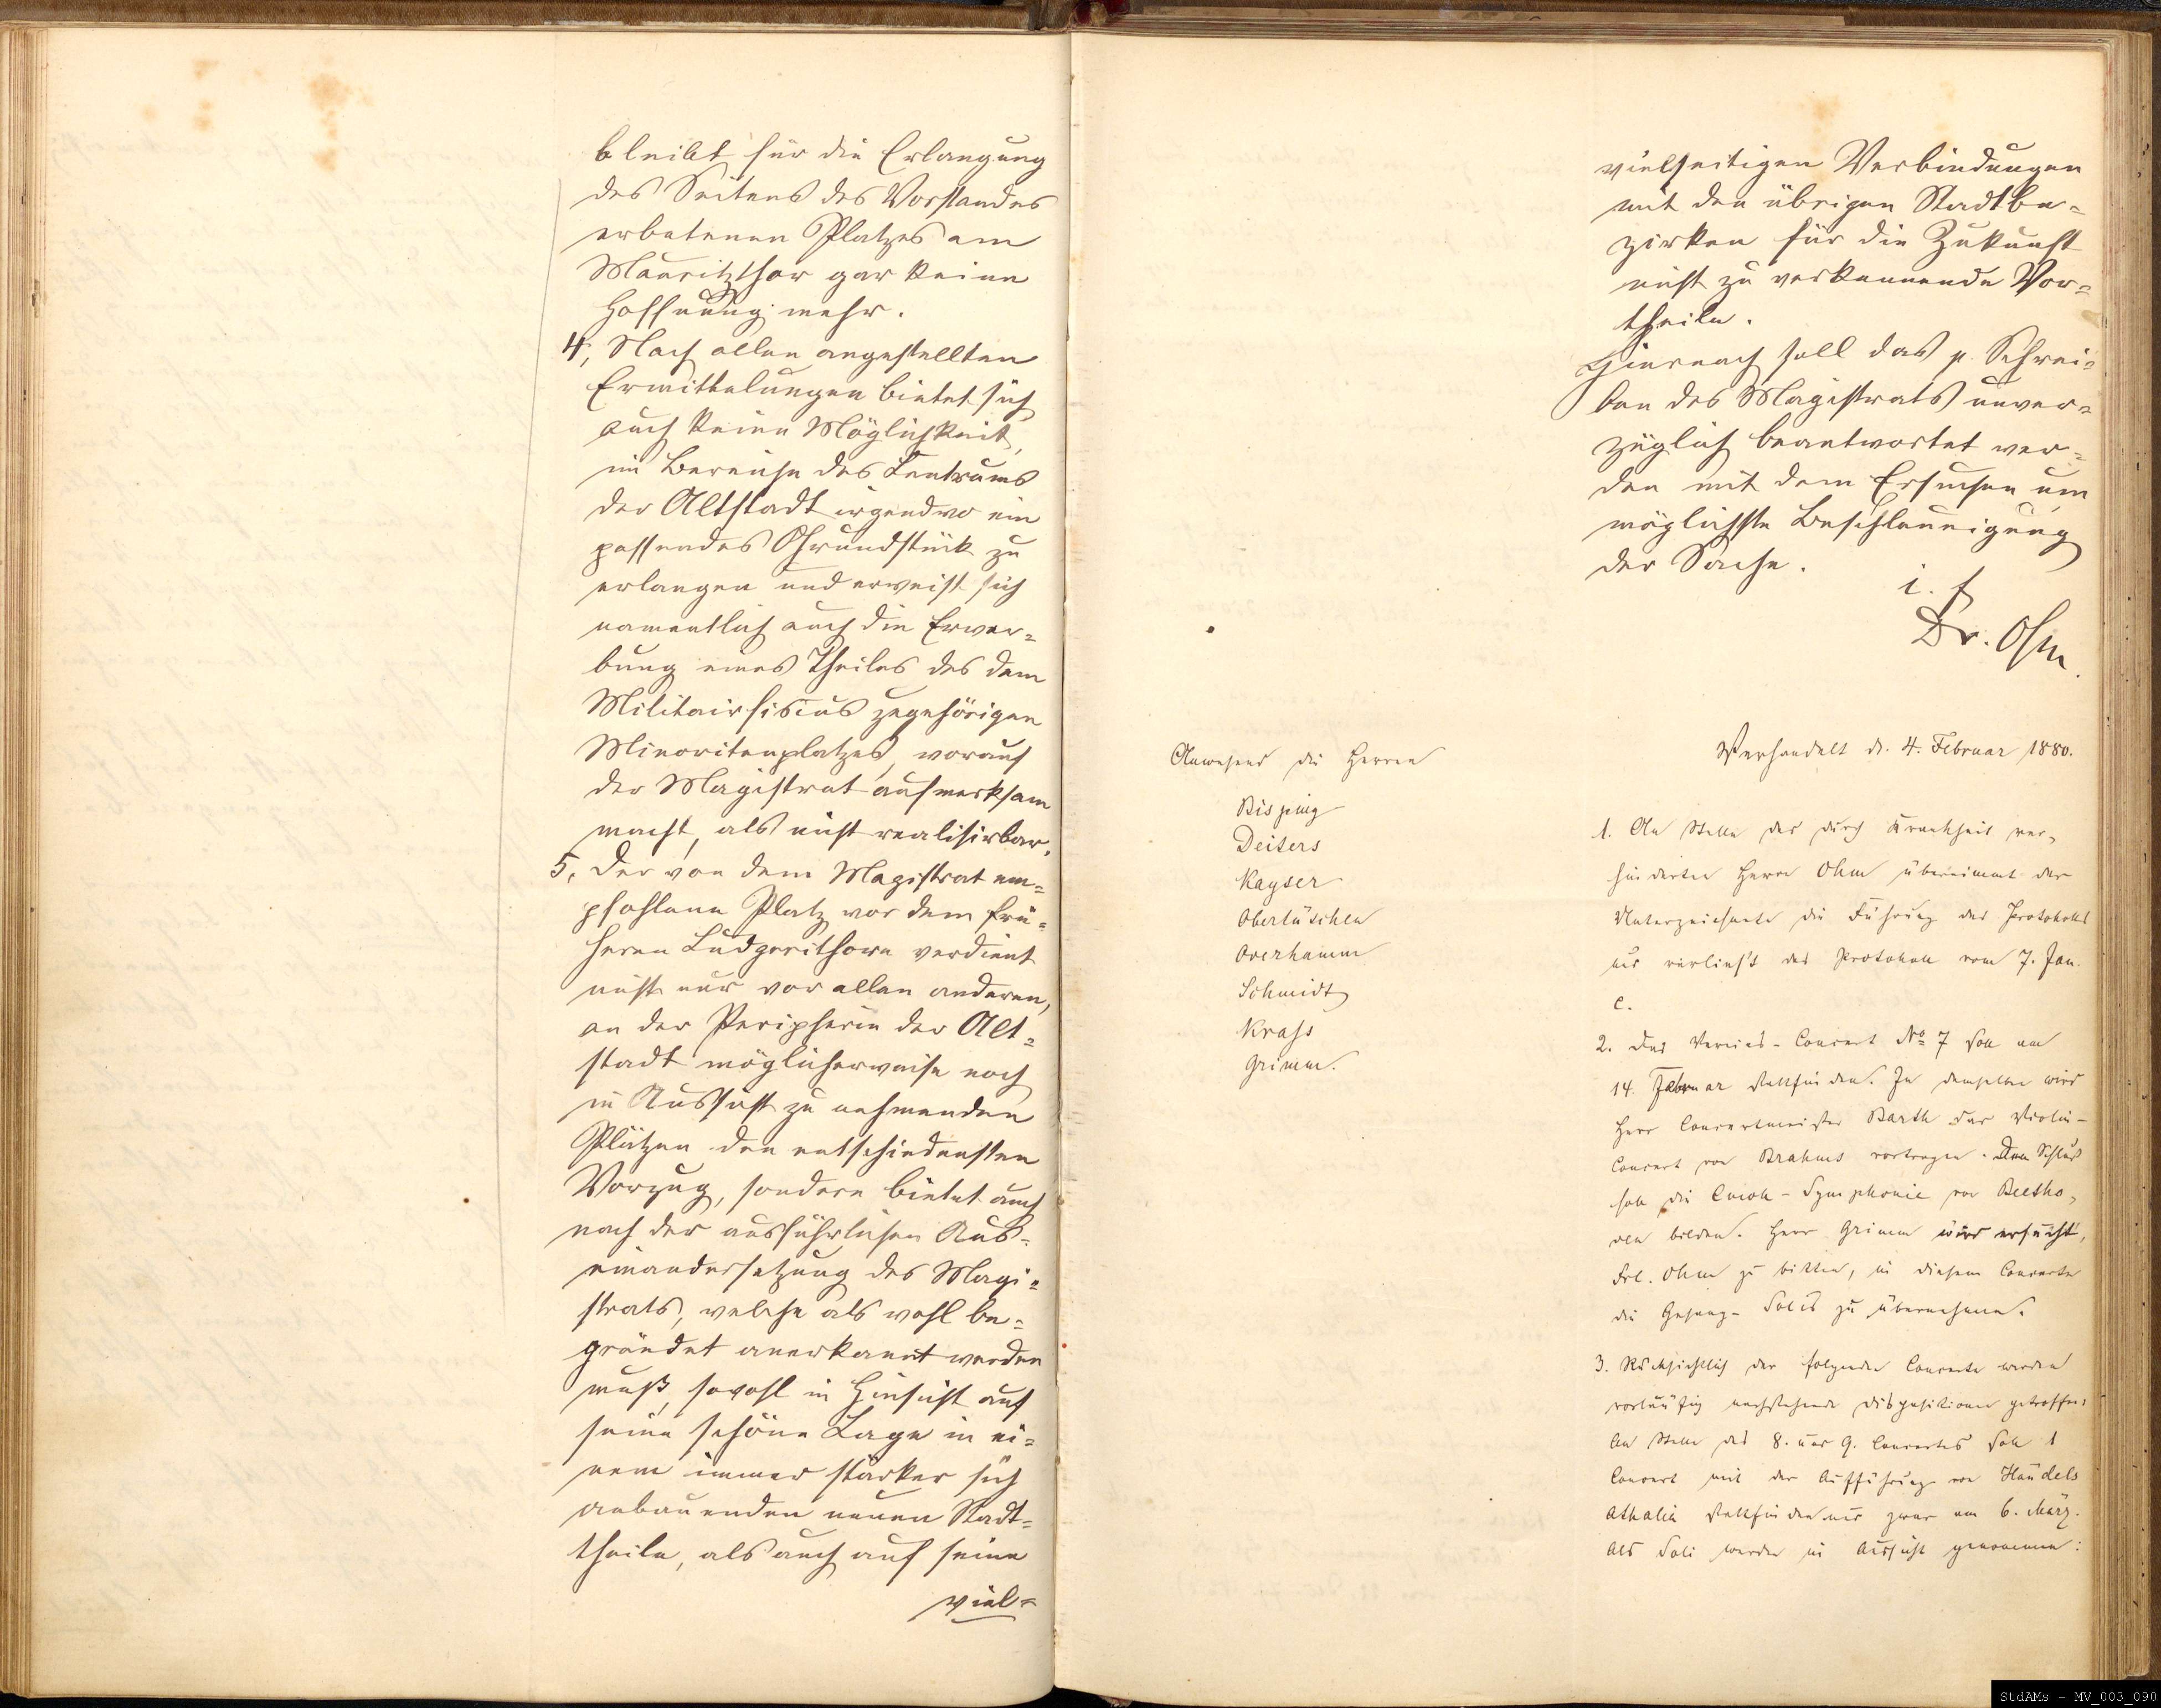 bleibt für die Erlangung
des Seitens des Vorstandes
erbetenen Platzes am
Mauritzthor gar keine
Hoffnung mehr.
4, Nach allen angestellten
Ermittelungen bietet sich
auch keine Möglichkeit,
im Bereiche des Centrums
der Altstadt irgendwo ein
passendes Grundstück zu
erlangen und erweist sich
namentlich auch die Erwer=
bung eines Theiles des dem
Militairfiscus zugehörigen
Minoritenplatzes, worauf
der Magistrat aufmerksam
macht, als nicht realisirbar.
5, Der von dem Magistrat em=
pfohlene Platz vor dem frü=
heren Ludgerithore verdient
nicht nur vor allen anderen,
an der Peripherie der Alt=
stadt möglicherweise noch
in Aussicht zu nehmenden
Plätzen den entschiedensten
Vorzug, sondern bietet auch
nach der ausführlichen Aus=
einandersetzung des Magi=
strats, welche als wohl be=
gründet anerkannt werden
muß, sowohl in Hinsicht auf
seine schöne Lage in ei=
nem immer stärker sich
anbauenden neuen Stadt=
theile, als auch auf seine
viel=
vielseitigen Verbindungen
mit den übrigen Stadtbe=
zirken für die Zukunft
nicht zu verkennende Vor=
theile.
Hiernach soll das p. Schrei=
ben des Magistrats unver=
züglich beantwortet wer=
den mit dem Ersuchen um
möglichste Beschleunigung
der Sache.
i. f
Dr. Ohm.
Verhandelt d. 4. Februar 1880.
Anwesend die Herren
Bisping
Deiters
Kayser
Obertüschen
Overhamm
Schmidt
Krass
Grimm.
1. An Stelle des durch Krankheit ver=
hinderten Herrn Ohm übernimmt der
Unterzeichnete die Führung des Protokolls
und verliest das Protokoll vom 7. Jan.
c.
2. Das Vereins-Concert No 7 soll am
14. Februar stattfinden. In demselben wird
Herr Concertmeister Barth das Violin-
Concert von Brahms vortragen. Den Schluß
soll die C moll-Symphonie von Beetho=
ven bilden. Herr Grimm wird ersucht,
Frl. Ohm zu bitten, in diesem Concerte
die Gesang-Solis zu übernehmen.
3. Rücksichtlich der folgenden Concerte werden
vorläufig nachstehende Dispositionen getroffen:
An Stelle des 8. und 9. Concertes soll 1
Concert mit der Aufführung von Händels
Athalia stattfinden und zwar am 6. März.
Als Soli werden in Aussicht genommen:
StdAMs - MV_003_090